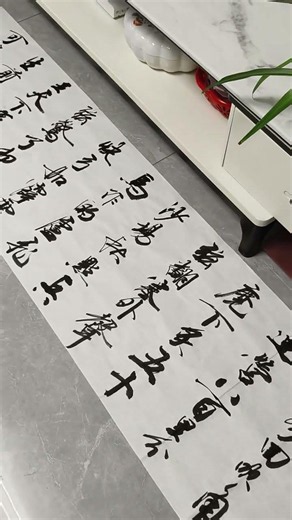 回吹角
連營八百里分
麾下炙五十
弦翻塞外聲
沙場秋點兵
馬作的盧飛
快弓如霹靂
弦驚了卻
王天下
生前
可